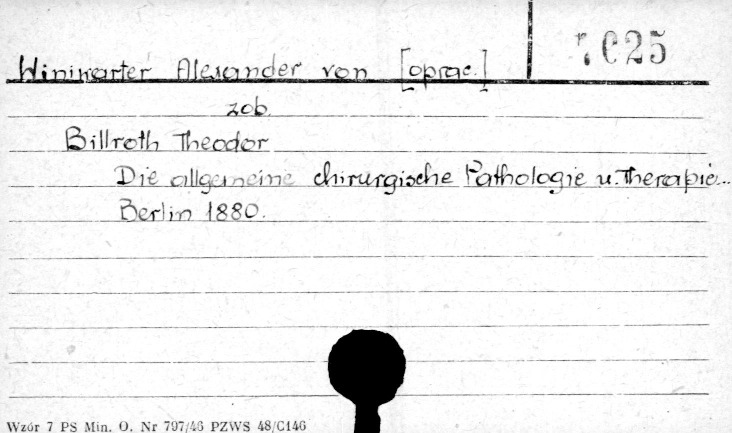 Winiwarter Alexander von [oprac.]
7025
zob.
Billroth Theodor
Die allgemeine chirurgische Pathologie u. Therapie...
Berlin 1880.
Wzór 7 PS Min. O. Nr 797/46 PZWS 48/C146